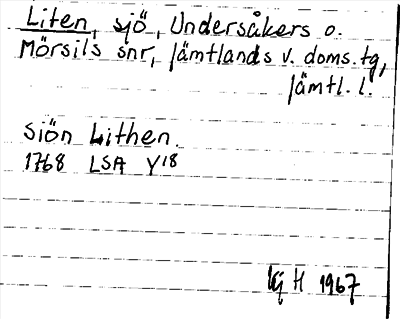 Liten, sjö, Undersåkers o.
Mörsils snr, Jämtlands v. doms.tg,
Jämtl. l.
siön Lithen.
1768 LSA Y18
H 1967